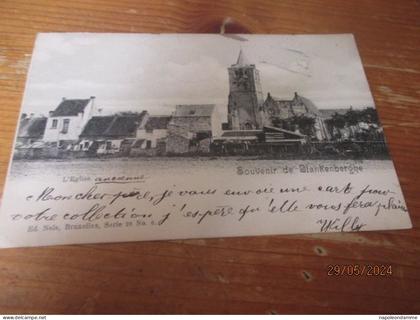 Souvenir de Blankenberghe
L'Eglise ancienne
Mon cher père, je vous envoie une cart pour
votre collection j'espère qu'elle vous fera plaisir
Willy
Ed. Nels, Bruxelles, Serie 28 No. 6
29/05/2024
www.napoleondame.com